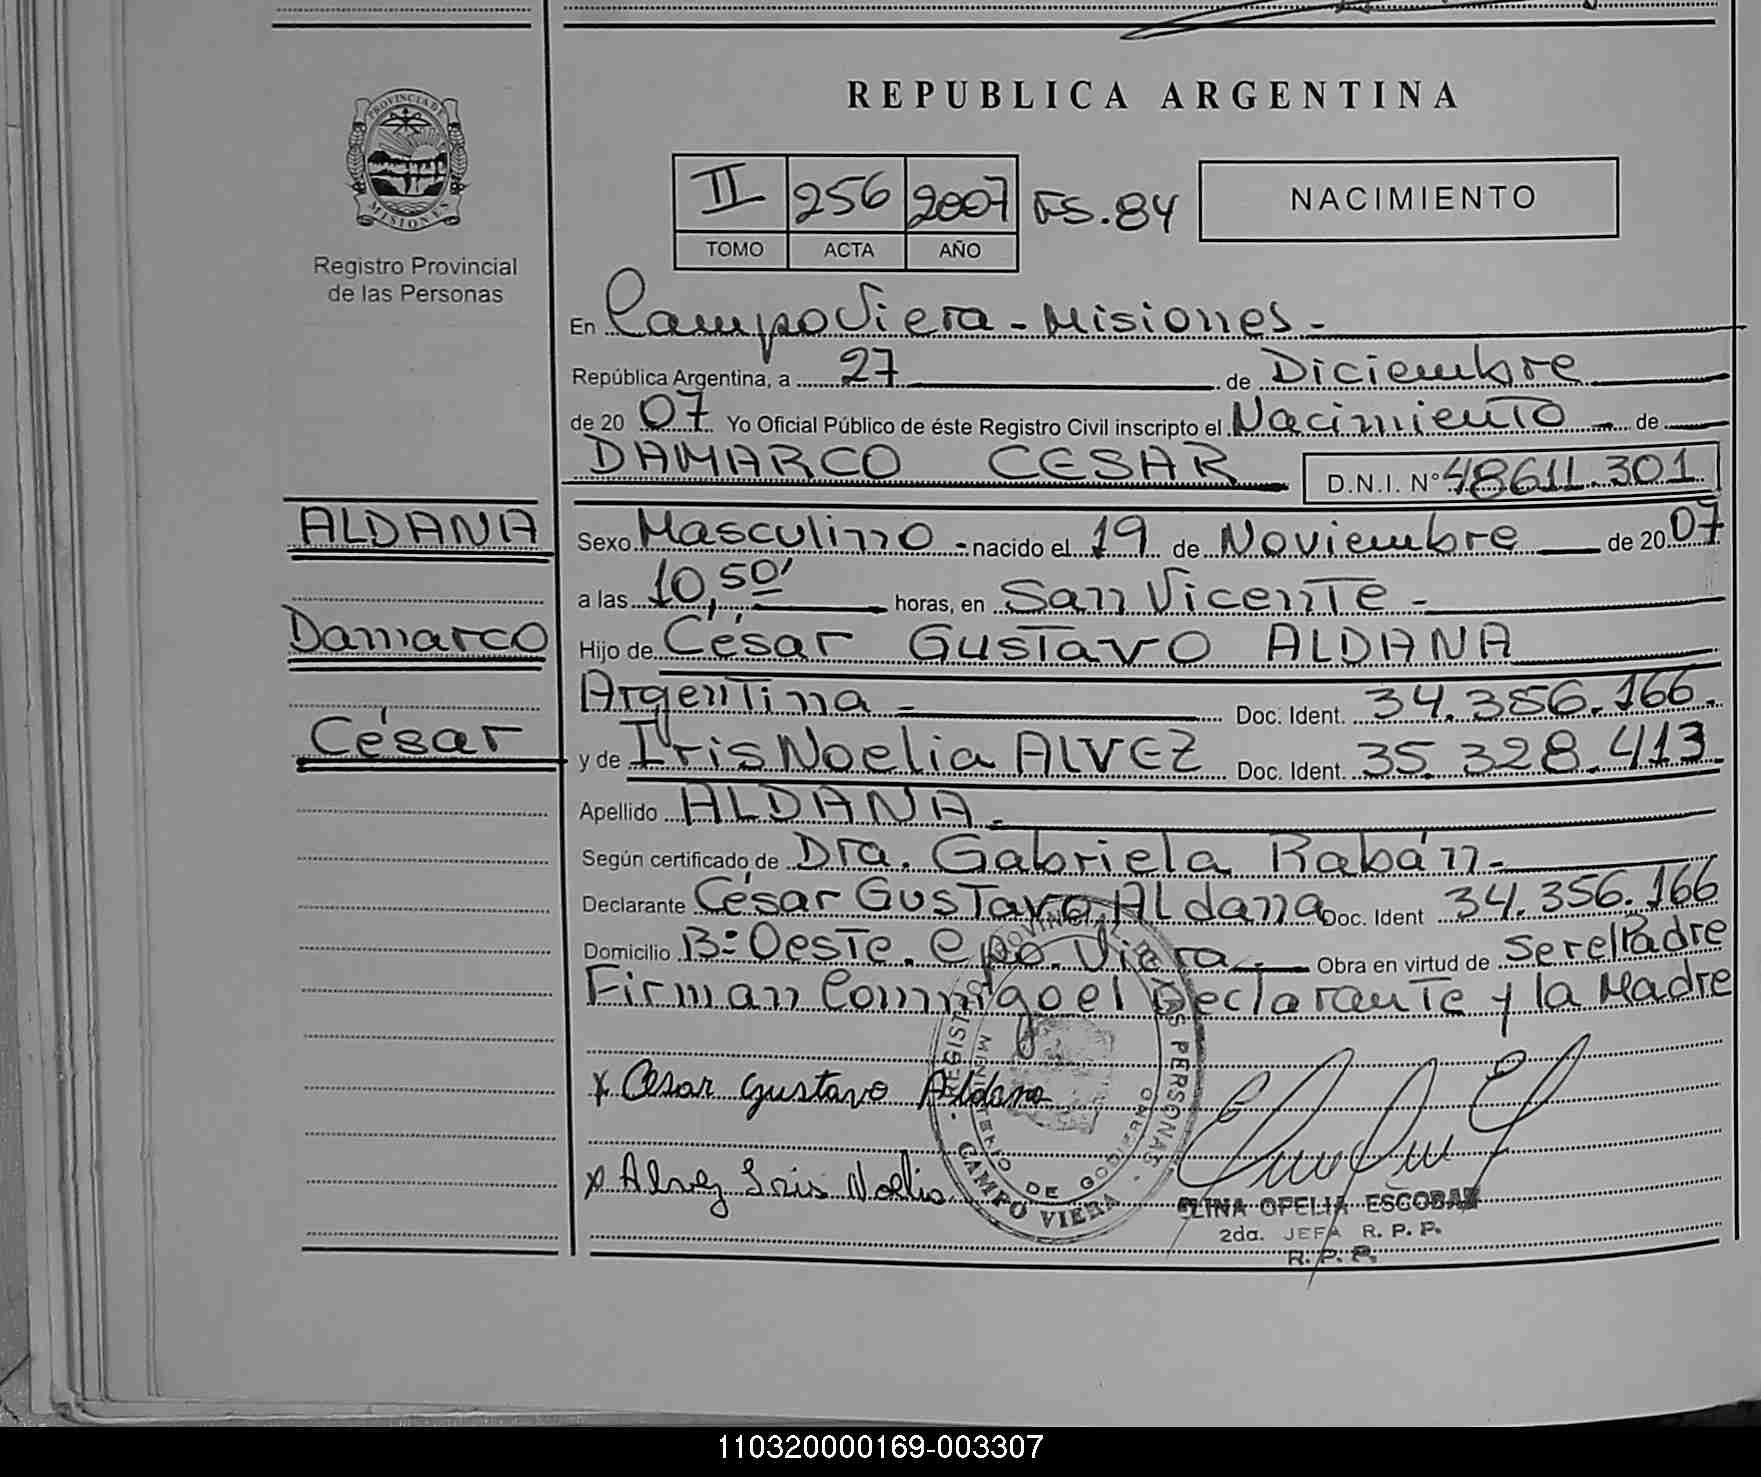 REPUBLICA ARGENTINA
PROVINCIA DE
MISIONES
Registro Provincial
de las Personas
II 256 2007 FS. 84
TOMO ACTA AÑO
NACIMIENTO
En Campo Viera - Misiones -
República Argentina, a 27 de Diciembre
de 20 07 Yo Oficial Público de éste Registro Civil inscripto el Nacimiento - de
DAMARCO CESAR D.N.I. Nº 48611.301
ALDANA
Damarco
César
Sexo Masculino - nacido el 19 de Noviembre de 20 07
a las 10,50' horas, en San Vicente -
Hijo de César Gustavo ALDANA
Argentina - Doc. Ident. 34.356.166.
y de Iris Noelia ALVEZ Doc. Ident. 35.328.413
Apellido ALDANA -
Según certificado de Dra. Gabriela Rabán -
Declarante César Gustavo Aldana Doc. Ident 34.356.166
Domicilio Bº Oeste. Cpo. Viera - Obra en virtud de ser el Padre
Firman Conmigo el Declarante y la Madre
x Cesar Gustavo Aldana
x Alvez Iris Noelia
REGISTRO PROVINCIAL DE LAS PERSONAS
MINISTERIO DE GOBIERNO
CAMPO VIERA
ELINA OFELIA ESCOBAR
2da. JEFA R. P. P.
R. P. P.
110320000169-003307